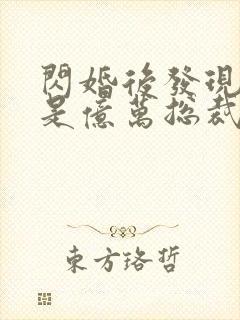 閃婚後發現
是億萬總裁
東方珞哲